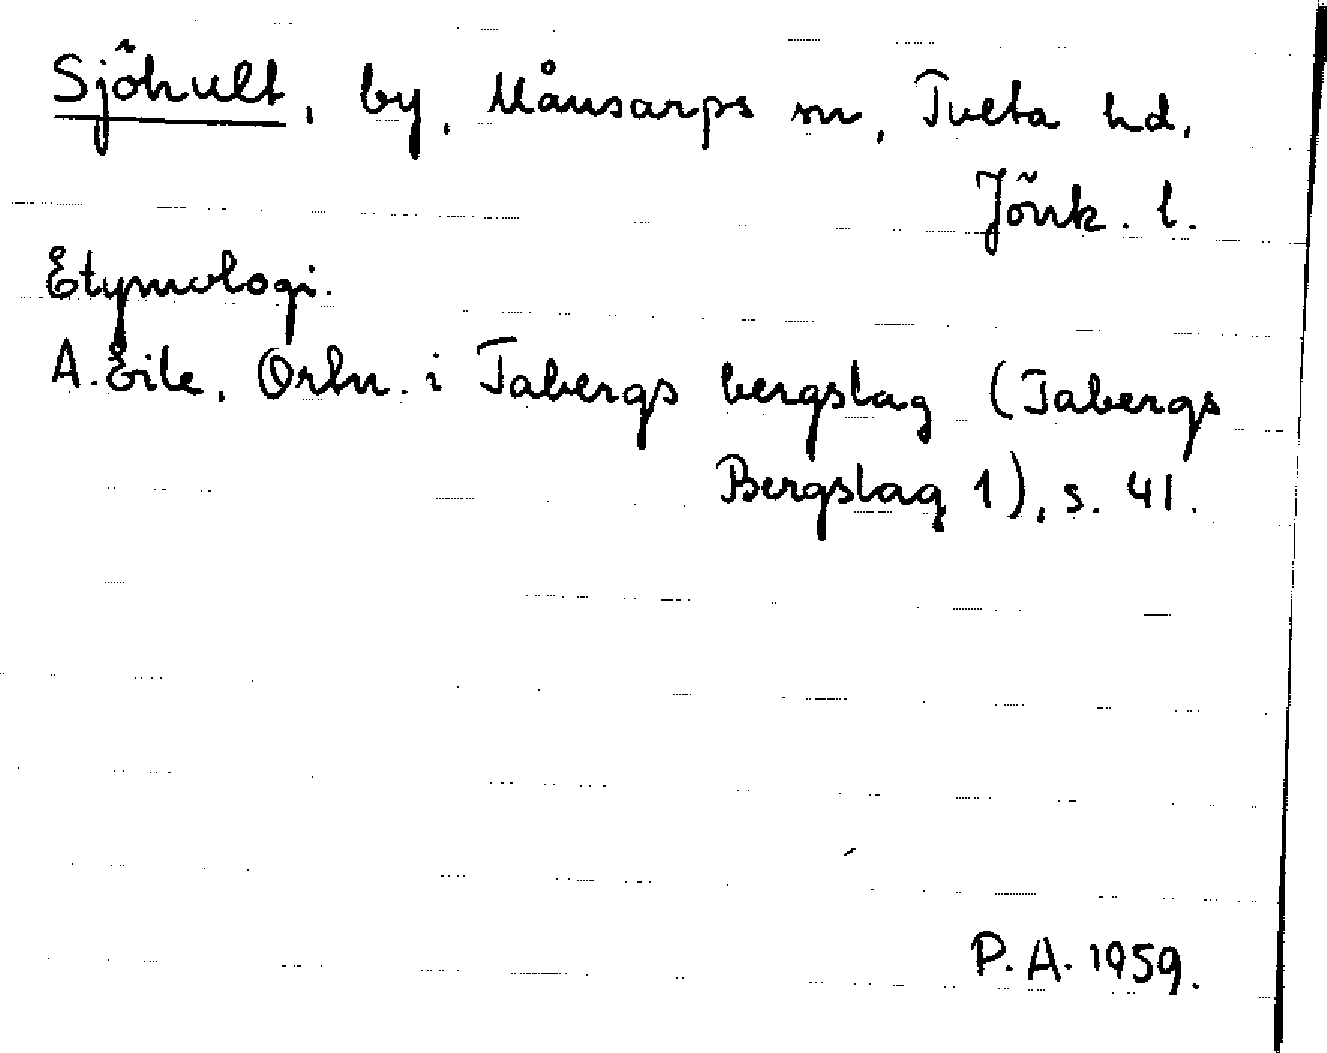 Sjöhult, by, Månsarps sn, Tveta hd,
Jönk. l.
Etymologi.
A. Eile, Ortn. i Tabergs bergslag (Tabergs
Bergslag 1), s. 41.
P. A. 1959.